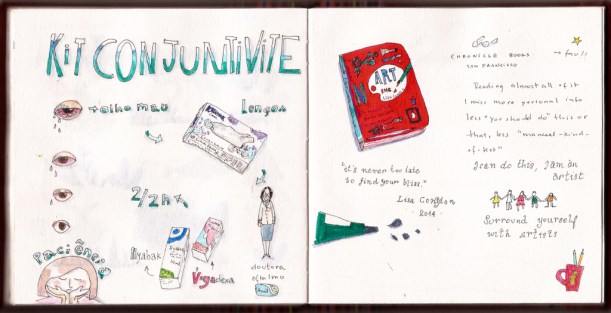 KIT CONJUNTIVITE
olho mau
Lenços
2/2h
Paciência
Miyabak
Vigadexa
doutora
oftalmo
ART
INC.
Lisa Congdon
"it's never too late
to find your bliss."
Lisa Congdon
2014
CHRONICLE BOOKS
SAN FRANCISCO
Reading almost all of it
I miss more personal info
less "you should do this or
that, less "manual-kind-
of-less"
I can do this, I am an
artist
Surround yourself
with artists